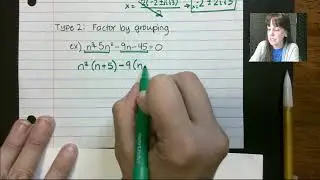 x = 2(-2±i√13)
-2±i√13
Type 2: Factor by grouping
ex) n³+5n²-9n-45=0
n²(n+5)-9(n